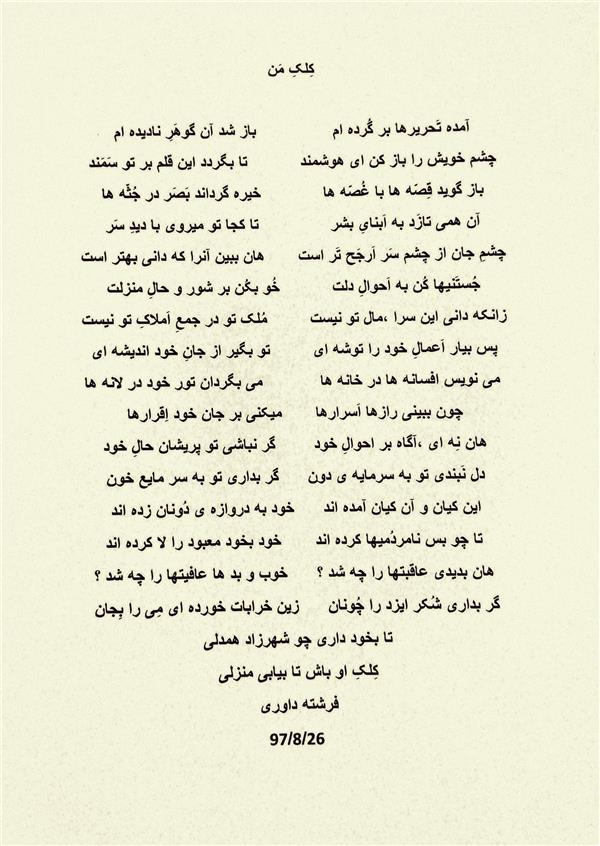 کِلکِ مَن
آمده تَحریرها بر گُرده ام باز شد آن گوهَرِ نادیده ام
چشم خویش را باز کن ای هوشمند تا بگردد این قلم بر تو سَمَند
باز گوید قِصّه ها با غُصّه ها خیره گرداند بَصَر در جُثّه ها
آن همی تازَد به اَبنایِ بشر تا کجا تو میروی با دیدِ سَر
چشمِ جان از چشم سَر اَرجَح تَر است هان ببین آنرا که دانی بهتر است
جُستَنیها کُن به اَحوالِ دلت خُو بکُن بر شور و حالِ منزلت
زانکه دانی این سرا ،مال تو نیست مُلک تو در جمعِ اَملاکِ تو نیست
پس بیار اَعمالِ خود را توشه ای تو بگیر از جانِ خود اندیشه ای
می نویس افسانه ها در خانه ها می بگردان تور خود در لانه ها
چون ببینی رازها اَسرارها میکنی بر جان خود اِقرارها
هان نِه ای ،آگاه بر احوالِ خود گر نباشی تو پریشان حالِ خود
دل نَبندی تو به سرمایه ی دون گر بداری تو به سر مایع خون
این کیان و آن کیان آمده اند خود به دروازه ی دُونان زده اند
تا چو بس نامردُمیها کرده اند خود بخود معبود را لا کرده اند
هان بدیدی عاقبتها را چه شد ؟ خوب و بد ها عافیتها را چه شد ؟
گر بداری شُکر ایزد را چُونان زین خرابات خورده ای مِی را بِجان
تا بخود داری چو شهرزاد همدلی
کِلکِ او باش تا بیابی منزلی
فرشته داوری
97/8/26